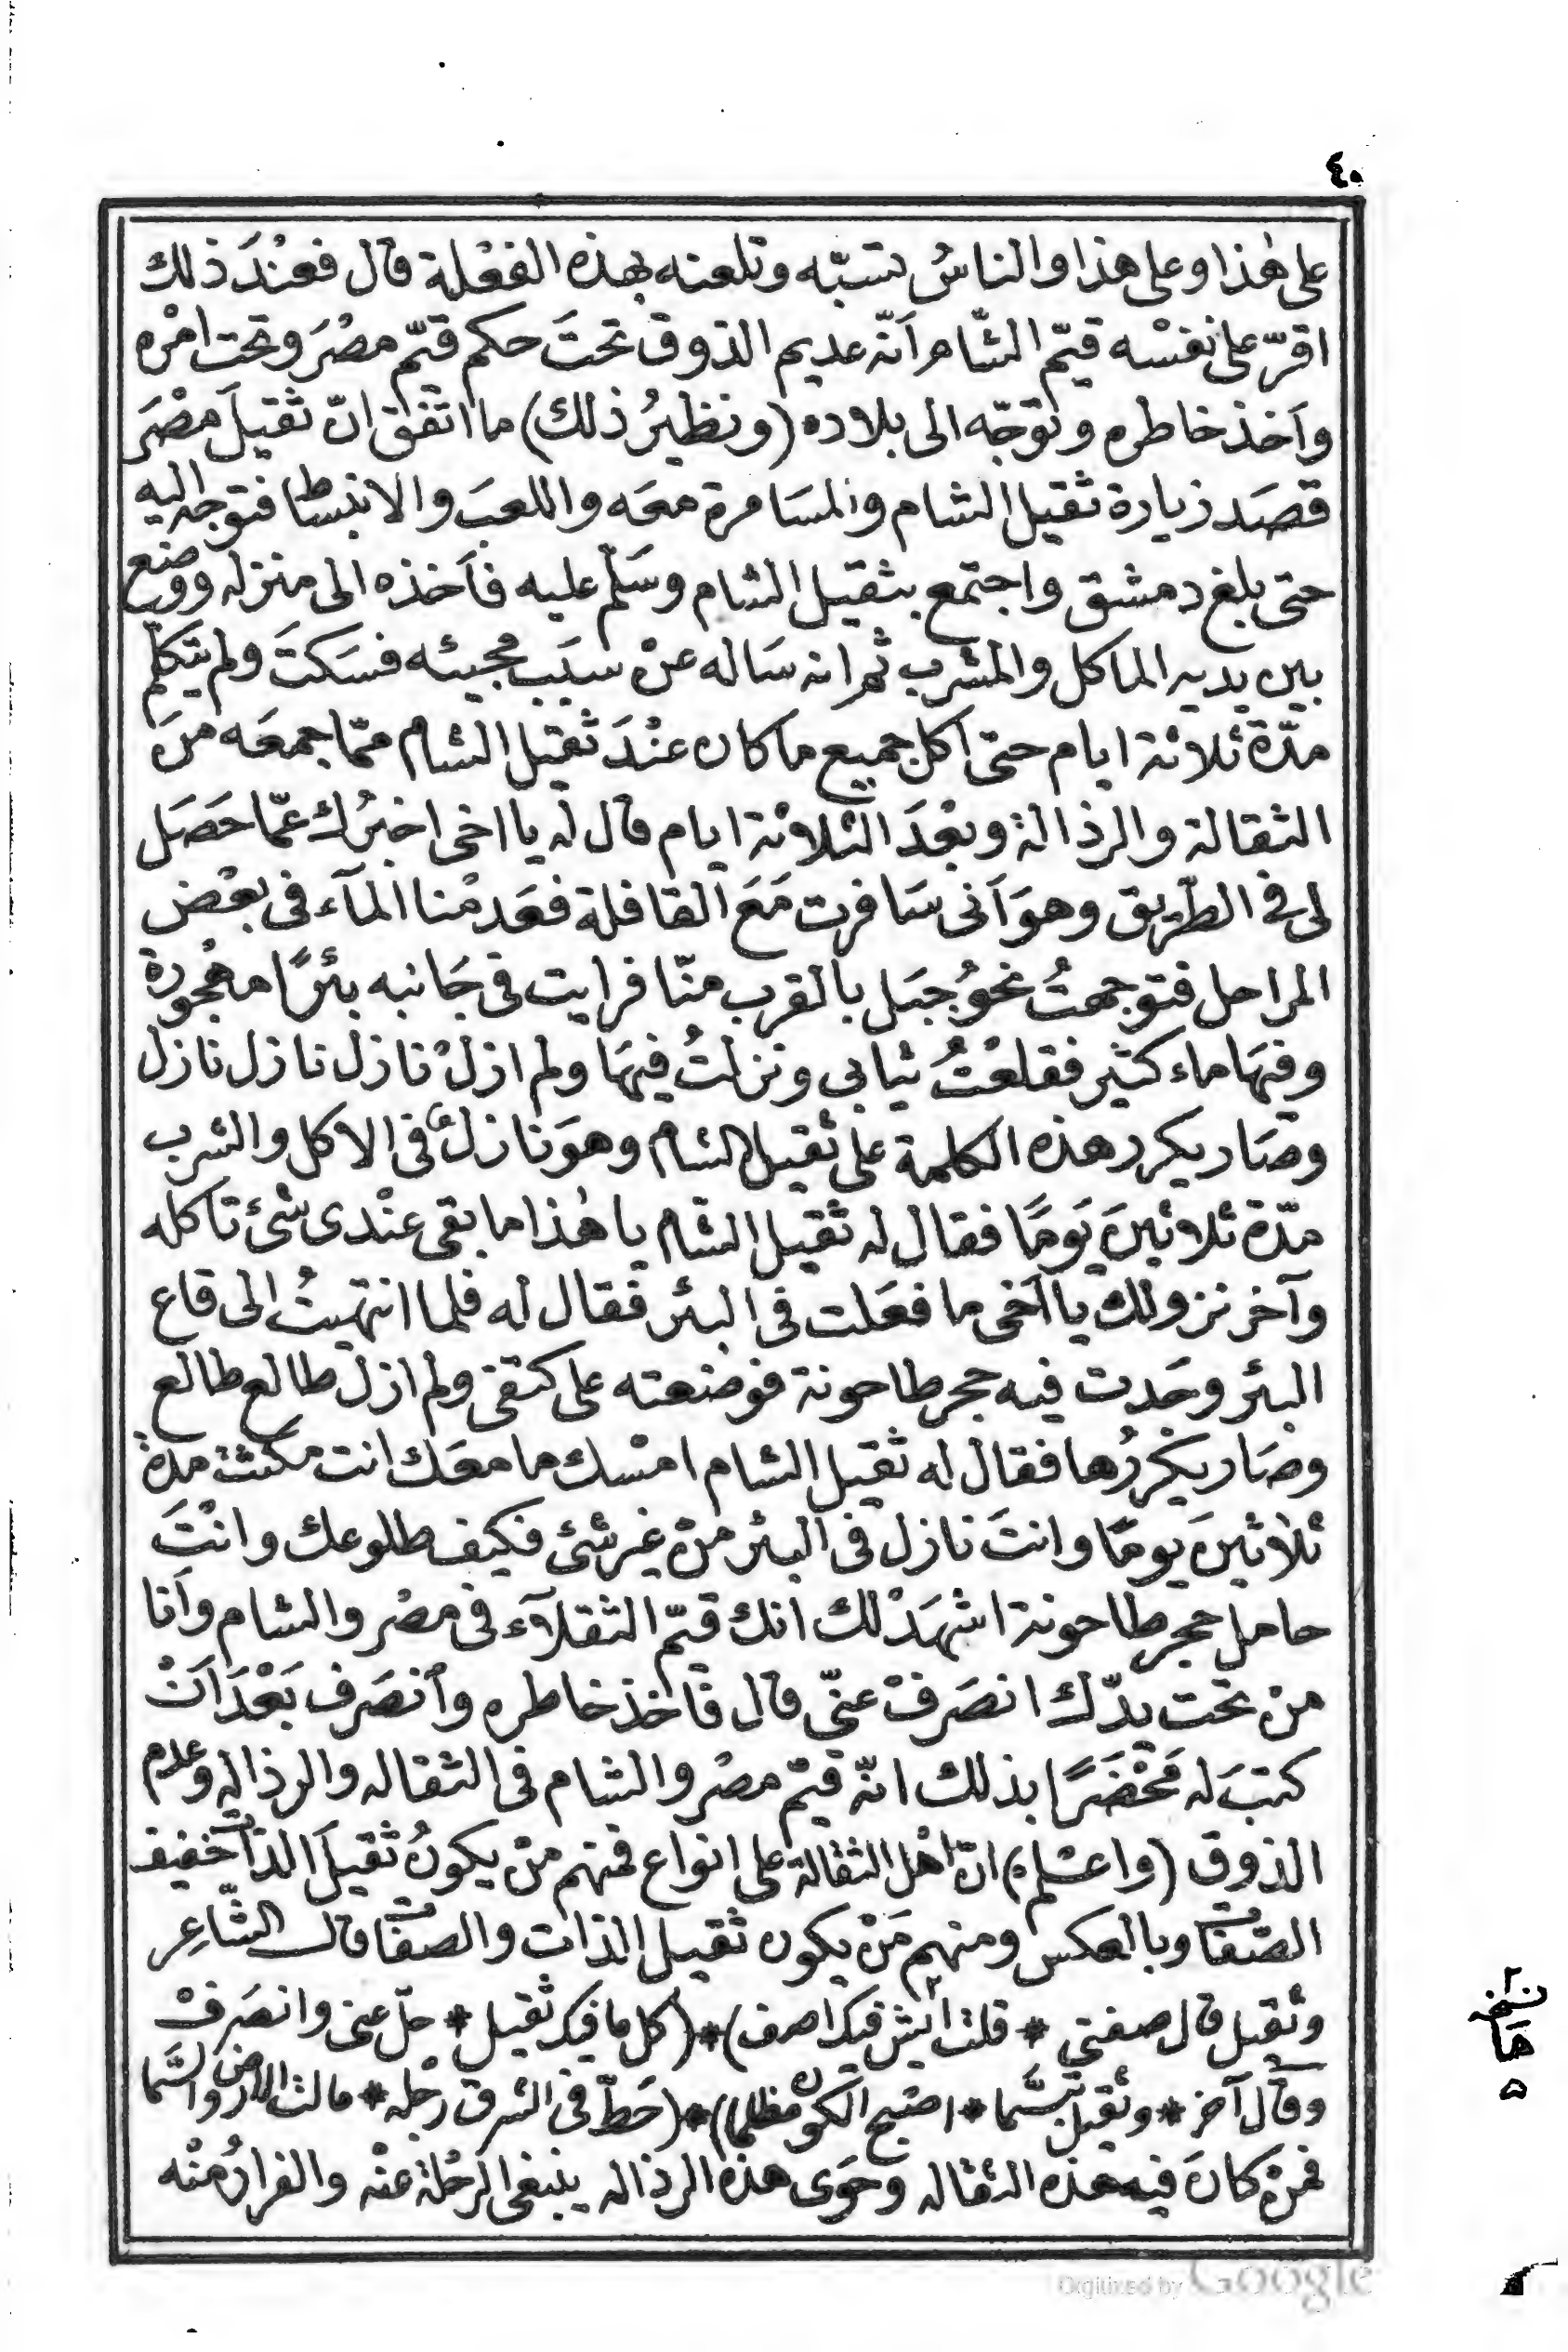 ٤٠
على هٰذا وعلى هذا والناسُ تسبّه وتلعنه بهذه الفعْلة قال فعنْدَ ذلك
اقرّ على نفسْه قيّم الشّام أنّه عديم الذوق تحتَ حكم قيّم مصْرَ وتحت امْره
وأخذ خاطره وتوجّه الى بلاده (ونظيرُ ذلك) ما اتفق انّ ثقيلَ مصْرَ
قصَد زيارة ثقيل الشام والمسَامرة معَه واللعبَ والانبسَاط فتوجه اليه
حتى بلغ دمشق واجتمع بثقيل الشام وسَلّم عليه فأخذه الى منزله ووضع
بين يديه الماكل والمشرب ثم انه سَاله عنْ سبَب مجيئه فسَكتَ ولم يتكلّم
مدّة ثلاثة ايام حتى اكل جميع ما كان عنْدَ ثقيل الشام ممّا جمعَه منَ
الثقالة والرذالة وبعْدَ الثلاثة ايام قال له يا اخى اخبرُك عمّا حَصَل
لى فى الطّريق وهوَ أنى سَافرت مَعَ القافلة فعَدمْنا المآء فى بعْض
المراحل فتوجهتُ نحوُ جبَل بالقرب منّا فرايت فى جَانبه بئرًا مهْجُورة
وفيهَا ماء كثير فقلعْتُ ثيابى ونزلتُ فيهَا ولم ازلْ نازل نازل نازل
وصَار يكرر هذه الكلمة على ثقيل الشام وهوَ نازلٌ فى الاكل والشرب
مدّة ثلاثينَ يَومًا فقال له ثقيل الشام يا هٰذا ما بقى عنْدى شئ تاكله
وآخر نزولك يا أخى ما فعَلت فى البئر فقال له فلما انتهيتُ الى قاع
البئر وجَدت فيه حجر طاحونة فوضعته على كتفى ولم ازلْ طالع طالع
وصَار يكرّرُها فقال له ثقيل الشام امْسك ما معَك انت مكثت مدة
ثلاثينَ يومًا وانتَ نازل فى البئر منْ غير شئ فكيف طلوعك وانْتَ
حامل حجر طاحونة اشهَدْ لك انك قيّم الثقلآء فى مصْر والشام وأنا
منْ تحت يدّك انصَرفْ عنّى قال فأخذ خاطره وأنصَرف بَعْدَ أنْ
كتبَ له مَحْضَرًا بذلك انّه قيّم مصْر والشام فى الثقاله والرذاله وعدم
الذوق (واعـلم) انّ أهْل الثقالة على انواع فمنهم منْ يكونُ ثقيلَ الذات خفيف
الصّفات وبالعكس ومنهم مَنْ يكون ثقيل الذات والصفات قال الشّاعِر
وثقيل قال صفنى * قلت ايش فيك اصف) * (كل ما فيك ثقيل * حلّ عنى وانصَرفْ
وقال آخر * وثقيل تبسّما * اصْبح الكون مظلما) * (حَطّ فى الشرق رجْله * مالت الارض والسّما
فمنْ كانَ فيه هذه الثقاله وحوَى هذه الرذاله ينبغى الرحْلة عنْه والفرارُ منْه
٢
نسخه
ها
ه
Digitized by Google